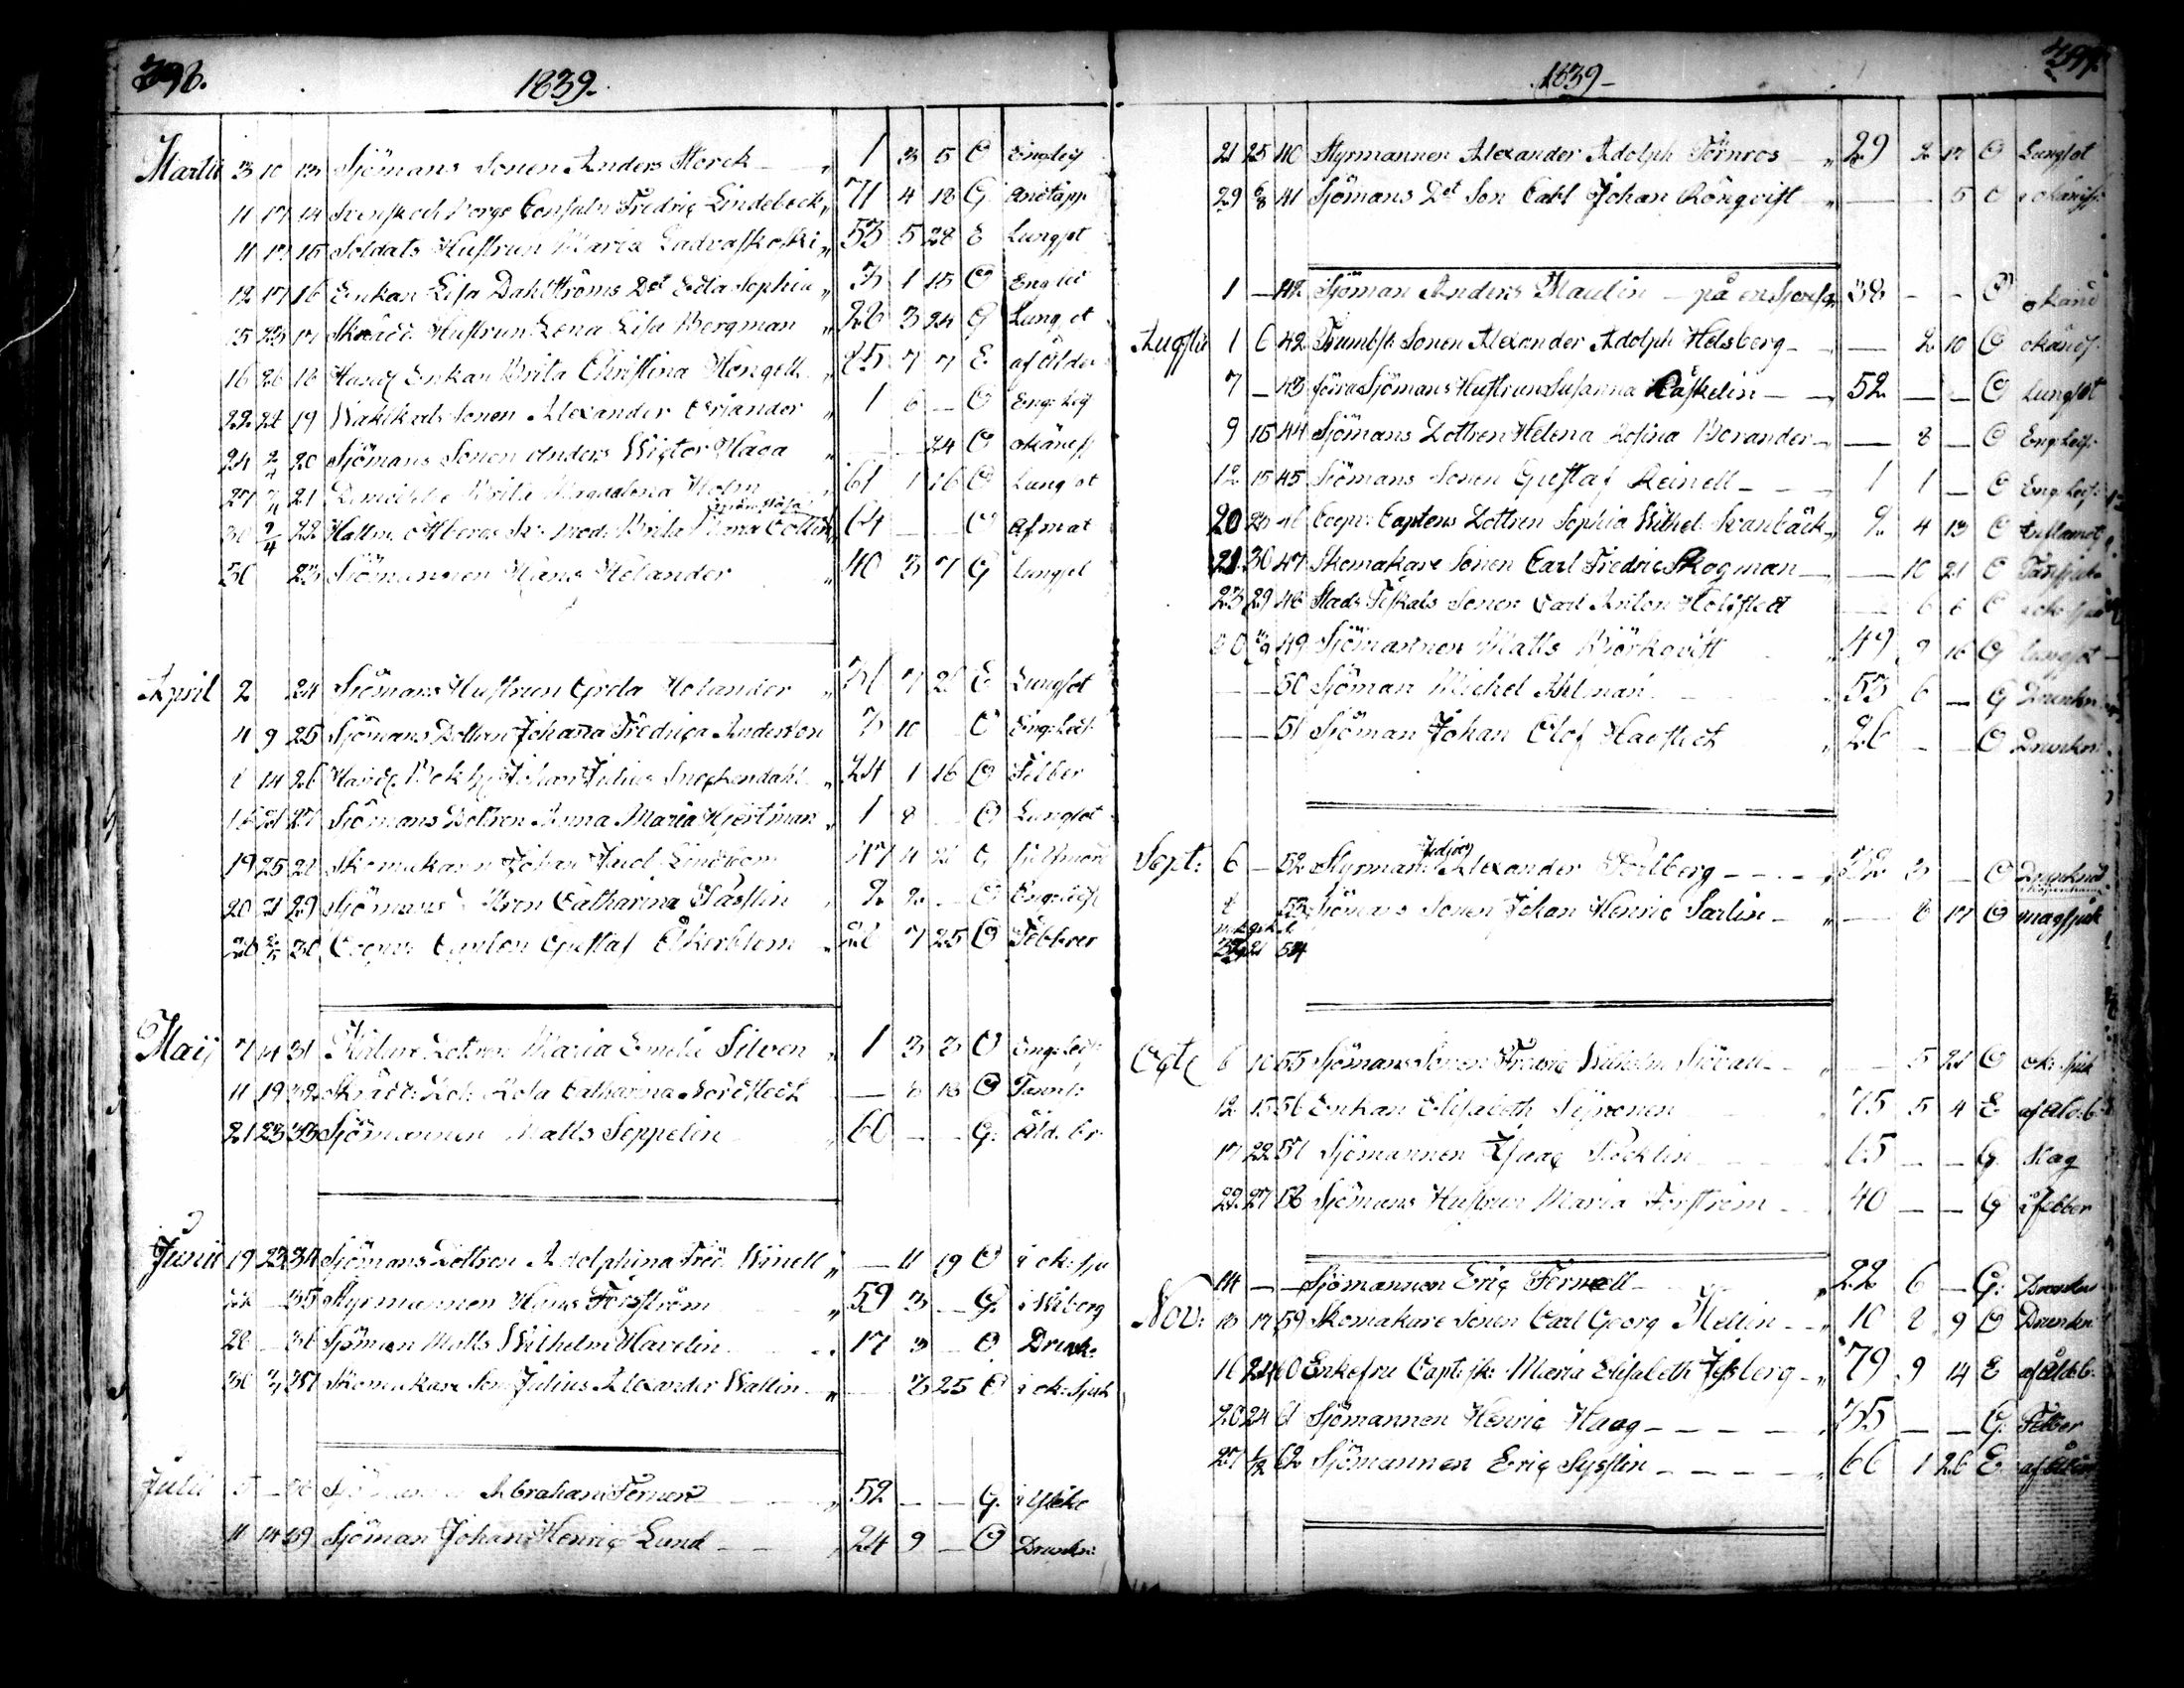 396.
1839.
Martii 3 10 13 Sjömans Sonen Anders Storck 1 3 5 O Eng. lief
11 17 14 Svensk och Norge Consuln Fredric Lindebeck 71 4 18 G Andtäpp
11 17 15 Soldats Hustrun Maria 53 5 28 E Lungsot
12 17 16 Enkan Lisa Dahlströms Dot Edla Sophia 3 1 15 O Eng lid
15 23 17 Skrädd. Hustrun Lena Lisa Bergman 26 3 24 G Lungsot
16 26 18 Handl Enkan Brita Christina Höngell 85 7 7 E af ålder
22 24 19 Sonen Alexander 1 6 – O Eng: lief
24 20 Sjömans Sonen Anders Victor Haga 24 O okänd sj
27 21 Brita Magdalena Holm 61 1 16 O Lungsot
30 9/4 22 Brita Collin 64 – – O Afmat
30 23 Sjömannen Hans Helander 40 3 7 G Lungsot
April 2 24 Sjömans Hustrun Greta Helander 7 E Lungsot
4 9 25 Sjömans Dottren Johanna Fredrica Anderson 3 10 O Eng: lief
14 26 Handl. Bokh. Johan Julius Snäckendahl 24 1 16 O Feber
27 Sjömans Dottren Anna Maria Hjertman 1 8 – O Lungsot
19 25 28 Skomakaren Johan Lindbom 47 4 G Sielfmord
20 21 29 Sjömans Catharina Hasslin 2 2 – O Eng: lief
30 Coopv: Capten Gustaf Åkerblom 7 25 O Febber
Maij 7 14 31 Dottren Maria Emelie Silven 1 3 3 O Eng: lief
11 19 32 Skrädd: Catharina Nordstedt – 8 18 O
21 23 33 Sjömannen Matts Seppelin 60 – – G. Åld. br
Junii 19 23 34 Sjömans Dottren Adolphina Fred. Winell – 11 19 O i ok: sju
– 35 Styrmannen Hans Forsström 59 3 – G. i Wiborg
28 – 36 Sjöman Matts Wilhelm Havelin 17 3 – O Drunk:
30 37 Skomakare Son Julius Alexander Wallin – 3 25 O i ok: sjuk
Julii – Abraham Ferner 52 – – G.
11 14 39 Sjöman Johan Henric Lund 24 9 – O Drunkn:
1839
21 25 40 Styrmannen Alexander Adolph Törnros 29 2 17 O Lungsot
29 6/8 41 Sjömans Dot Son Carl Johan Rönqvist – 5 O okänd sj:
1 – 42 Sjöman Anders Maulin på en Sjöresa 38 – – O okänd
Augstii 1 6 42 Trumbsl. Sonen Alexander Adolph Helsberg – 2 10 O okänd sj:
7 – 43 förra Sjömans Hustrun Susanna Raskelin 52 – – O Lungsot
9 15 44 Sjömans Dottren Helena Rosina Borander – 8 – O Eng. lief:
12 15 45 Sjömans Sonen Gustaf Reinell 1 1 – O Eng. lief:
20 26 46 Coopv: Captens Dottren Sophia Wilhel. Svanbäck 2 4 13 O Inflamat
21 30 47 Skomakare Sonen Carl Fredric Skogman – 10 21 O
23 29 48 Stads Fiskals Sonen Carl Anton Holdstedt – 6 6 O
30 49 Sjömannen Matts Björkqvist 49 9 16 G lungsot
– – 50 Sjöman Michel Ahlman 53 6 – G Drunkn
– – 51 Sjöman Johan Olof Hagstedt 26 – – O Drunkn
Sept: 6 – 52 Styrman Alexander 32 3 – O Drunknad
53 Sjömans Sonen Johan Henric Sarlin – 8 17 O magsjuk
21 54
Octb 6 10 55 Sjömans Sonen Fredric Wilhelm Sjövall – 5 21 O ok: sjuk
12 15 56 Enkan Elisabeth 75 5 4 E af Åld: b
17 22 57 Sjömannen Isaac Stocklin 65 – – G. Slag
22 27 58 Sjömans Hustrun Maria Forsström 40 – – G i febber
14 – – Sjömannen Eric Fernell 22 6 – G: Drunkn
Nov: 13 17 59 Skomakare Sonen Carl Georg Mellin 10 8 9 O Drunkn
16 24 60 Enkefru Captsk: Maria Elisabeth Jessberg 79 9 14 E af Åld: b.
20 24 61 Sjömannen Henric Haag 35 – – G. Feber
27 1/12 62 Sjömannen Eric Sysslin 66 1 26 E af